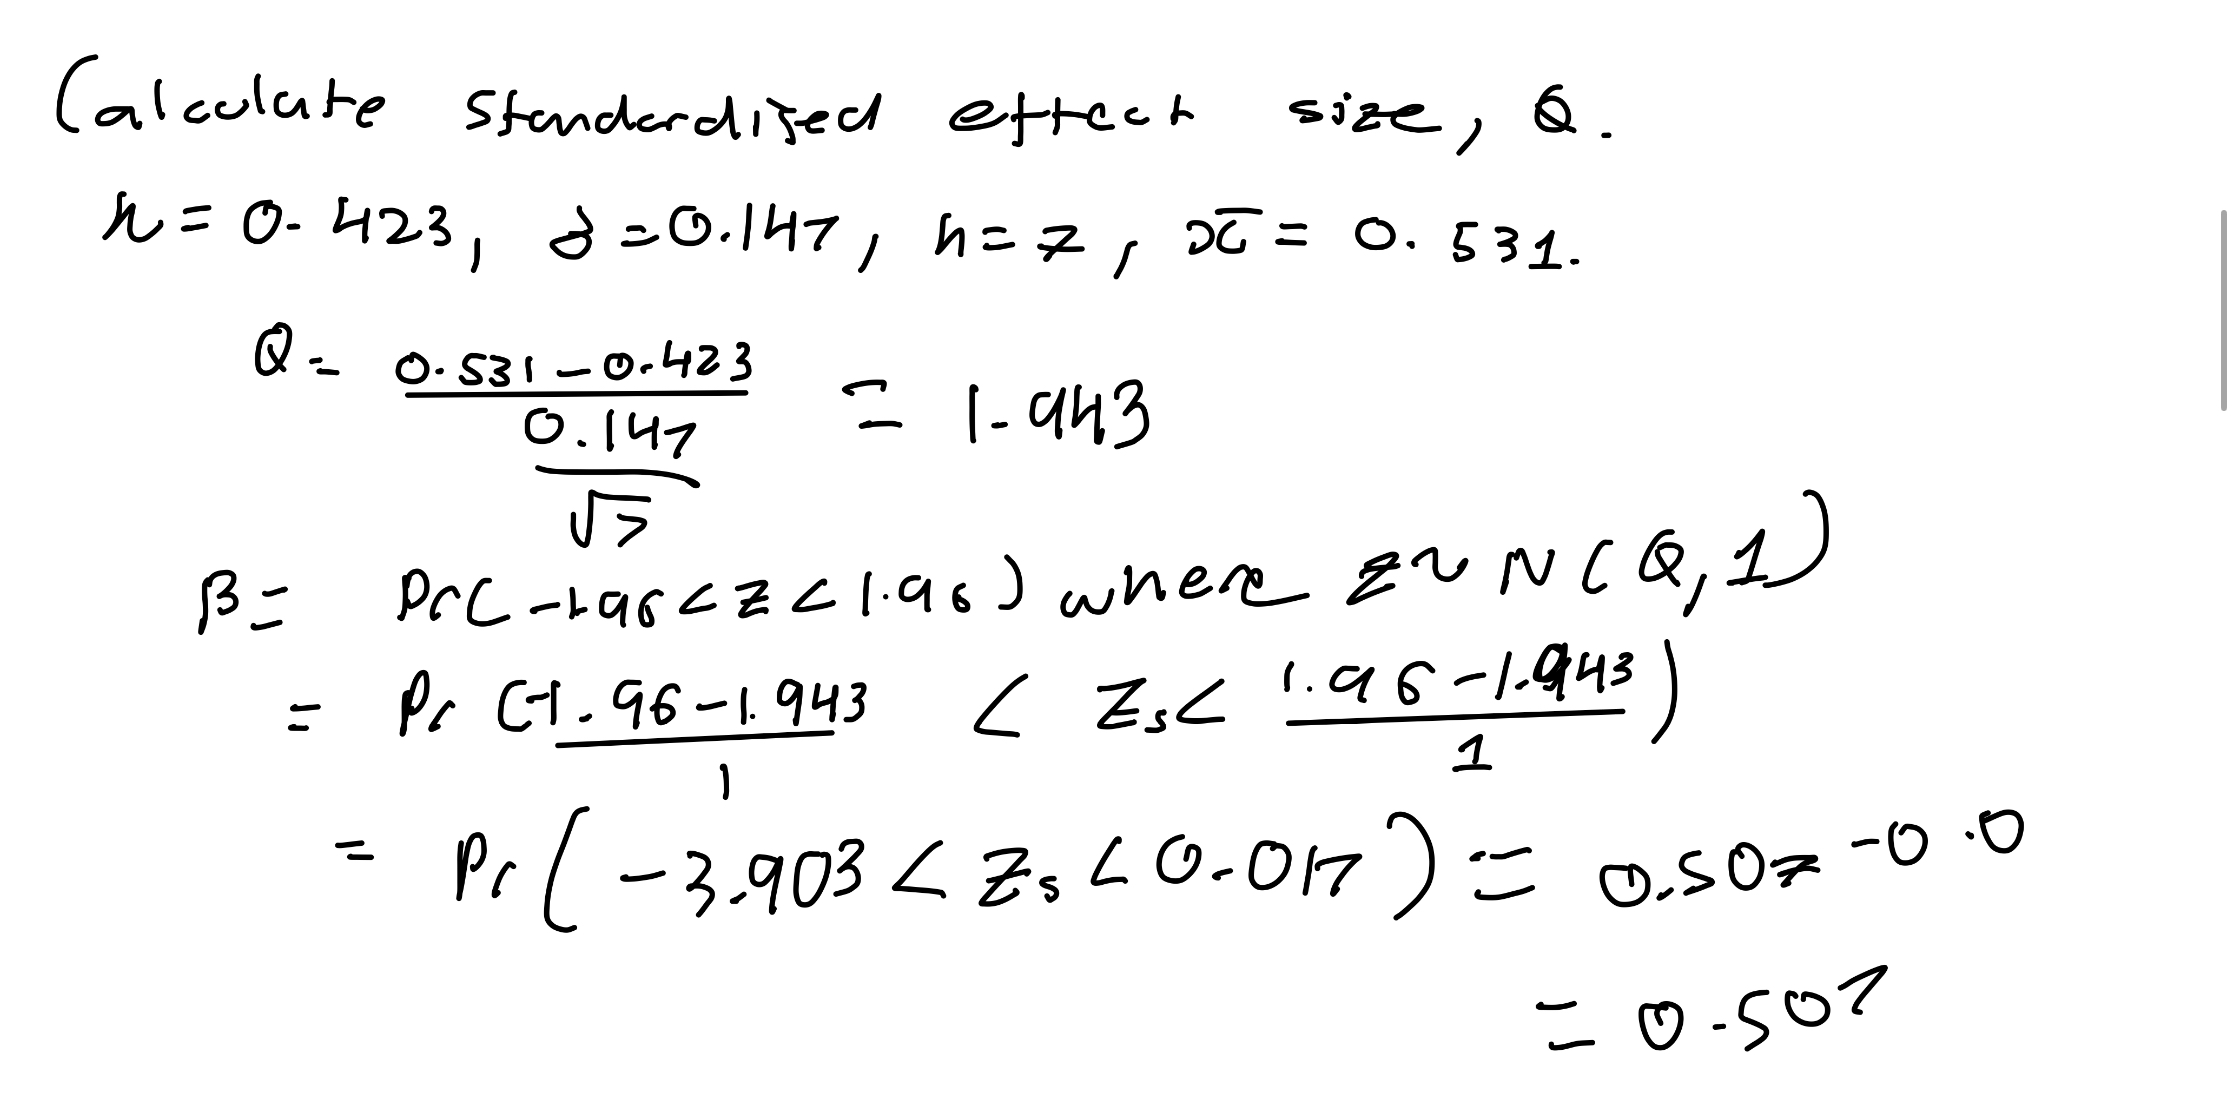 Calculate standardised effect size, Q.
μ = 0.423, σ = 0.147, n = 7, x̄ = 0.531.
Q = (0.531 - 0.423) / (0.147 / √7) = 1.943
β = Pr(-1.96 < z < 1.96) where z ~ N(Q, 1)
= Pr((-1.96 - 1.943)/1 < Zs < (1.96 - 1.943)/1)
= Pr(-3.903 < Zs < 0.017) = 0.507 - 0.0
= 0.507